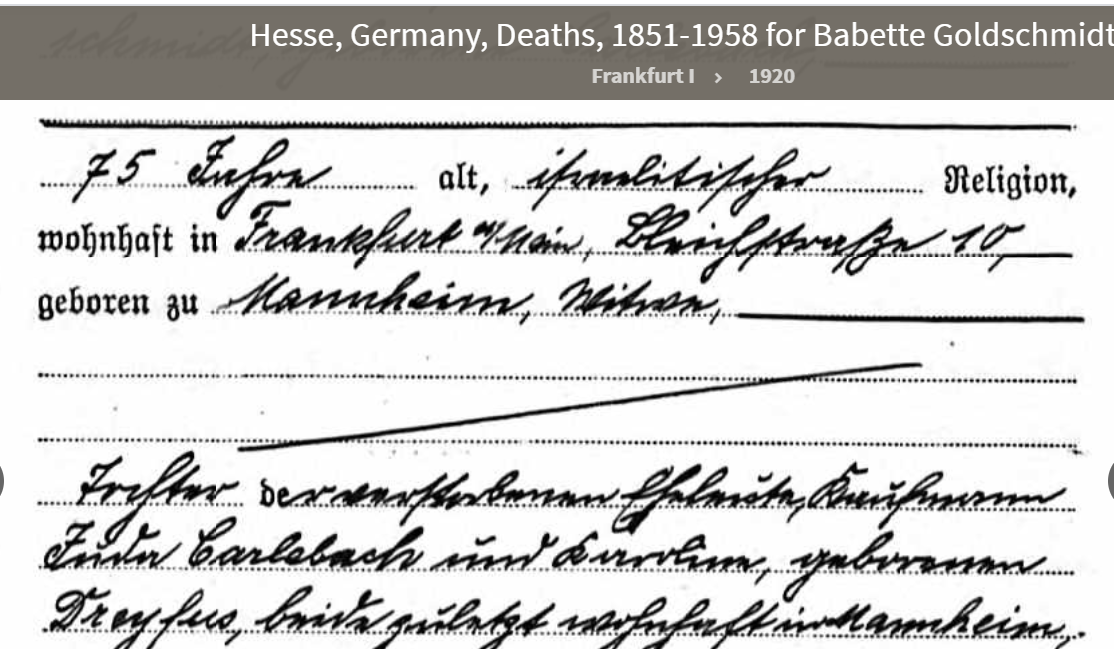 Hesse, Germany, Deaths, 1851-1958 for Babette Goldschmidt
Frankfurt I › 1920
75 Jahre alt, israelitischer Religion,
wohnhaft in Frankfurt a/Main, Bleichstraße 10,
geboren zu Mannheim, Witwe,
Tochter der verstorbenen Eheleute, Kaufmann
Juda Carlebach und Karoline, geborenen
Dreyfus, beide zuletzt wohnhaft in Mannheim,